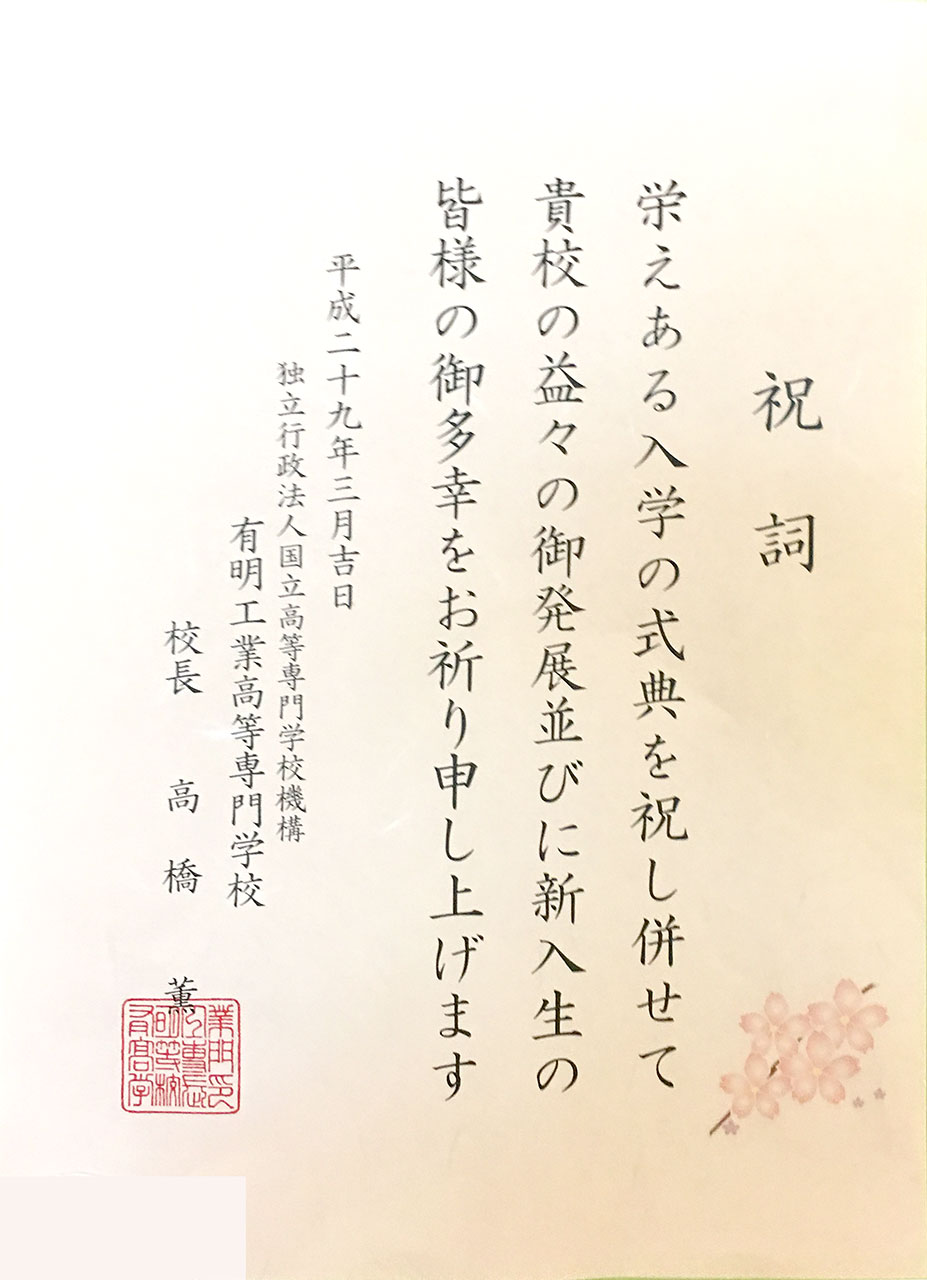 祝詞
栄えある入学の式典を祝し併せて
貴校の益々の御発展並びに新入生の
皆様の御多幸をお祈り申し上げます
平成二十九年三月吉日
独立行政法人国立高等専門学校機構
有明工業高等専門学校
校長 高橋 薫